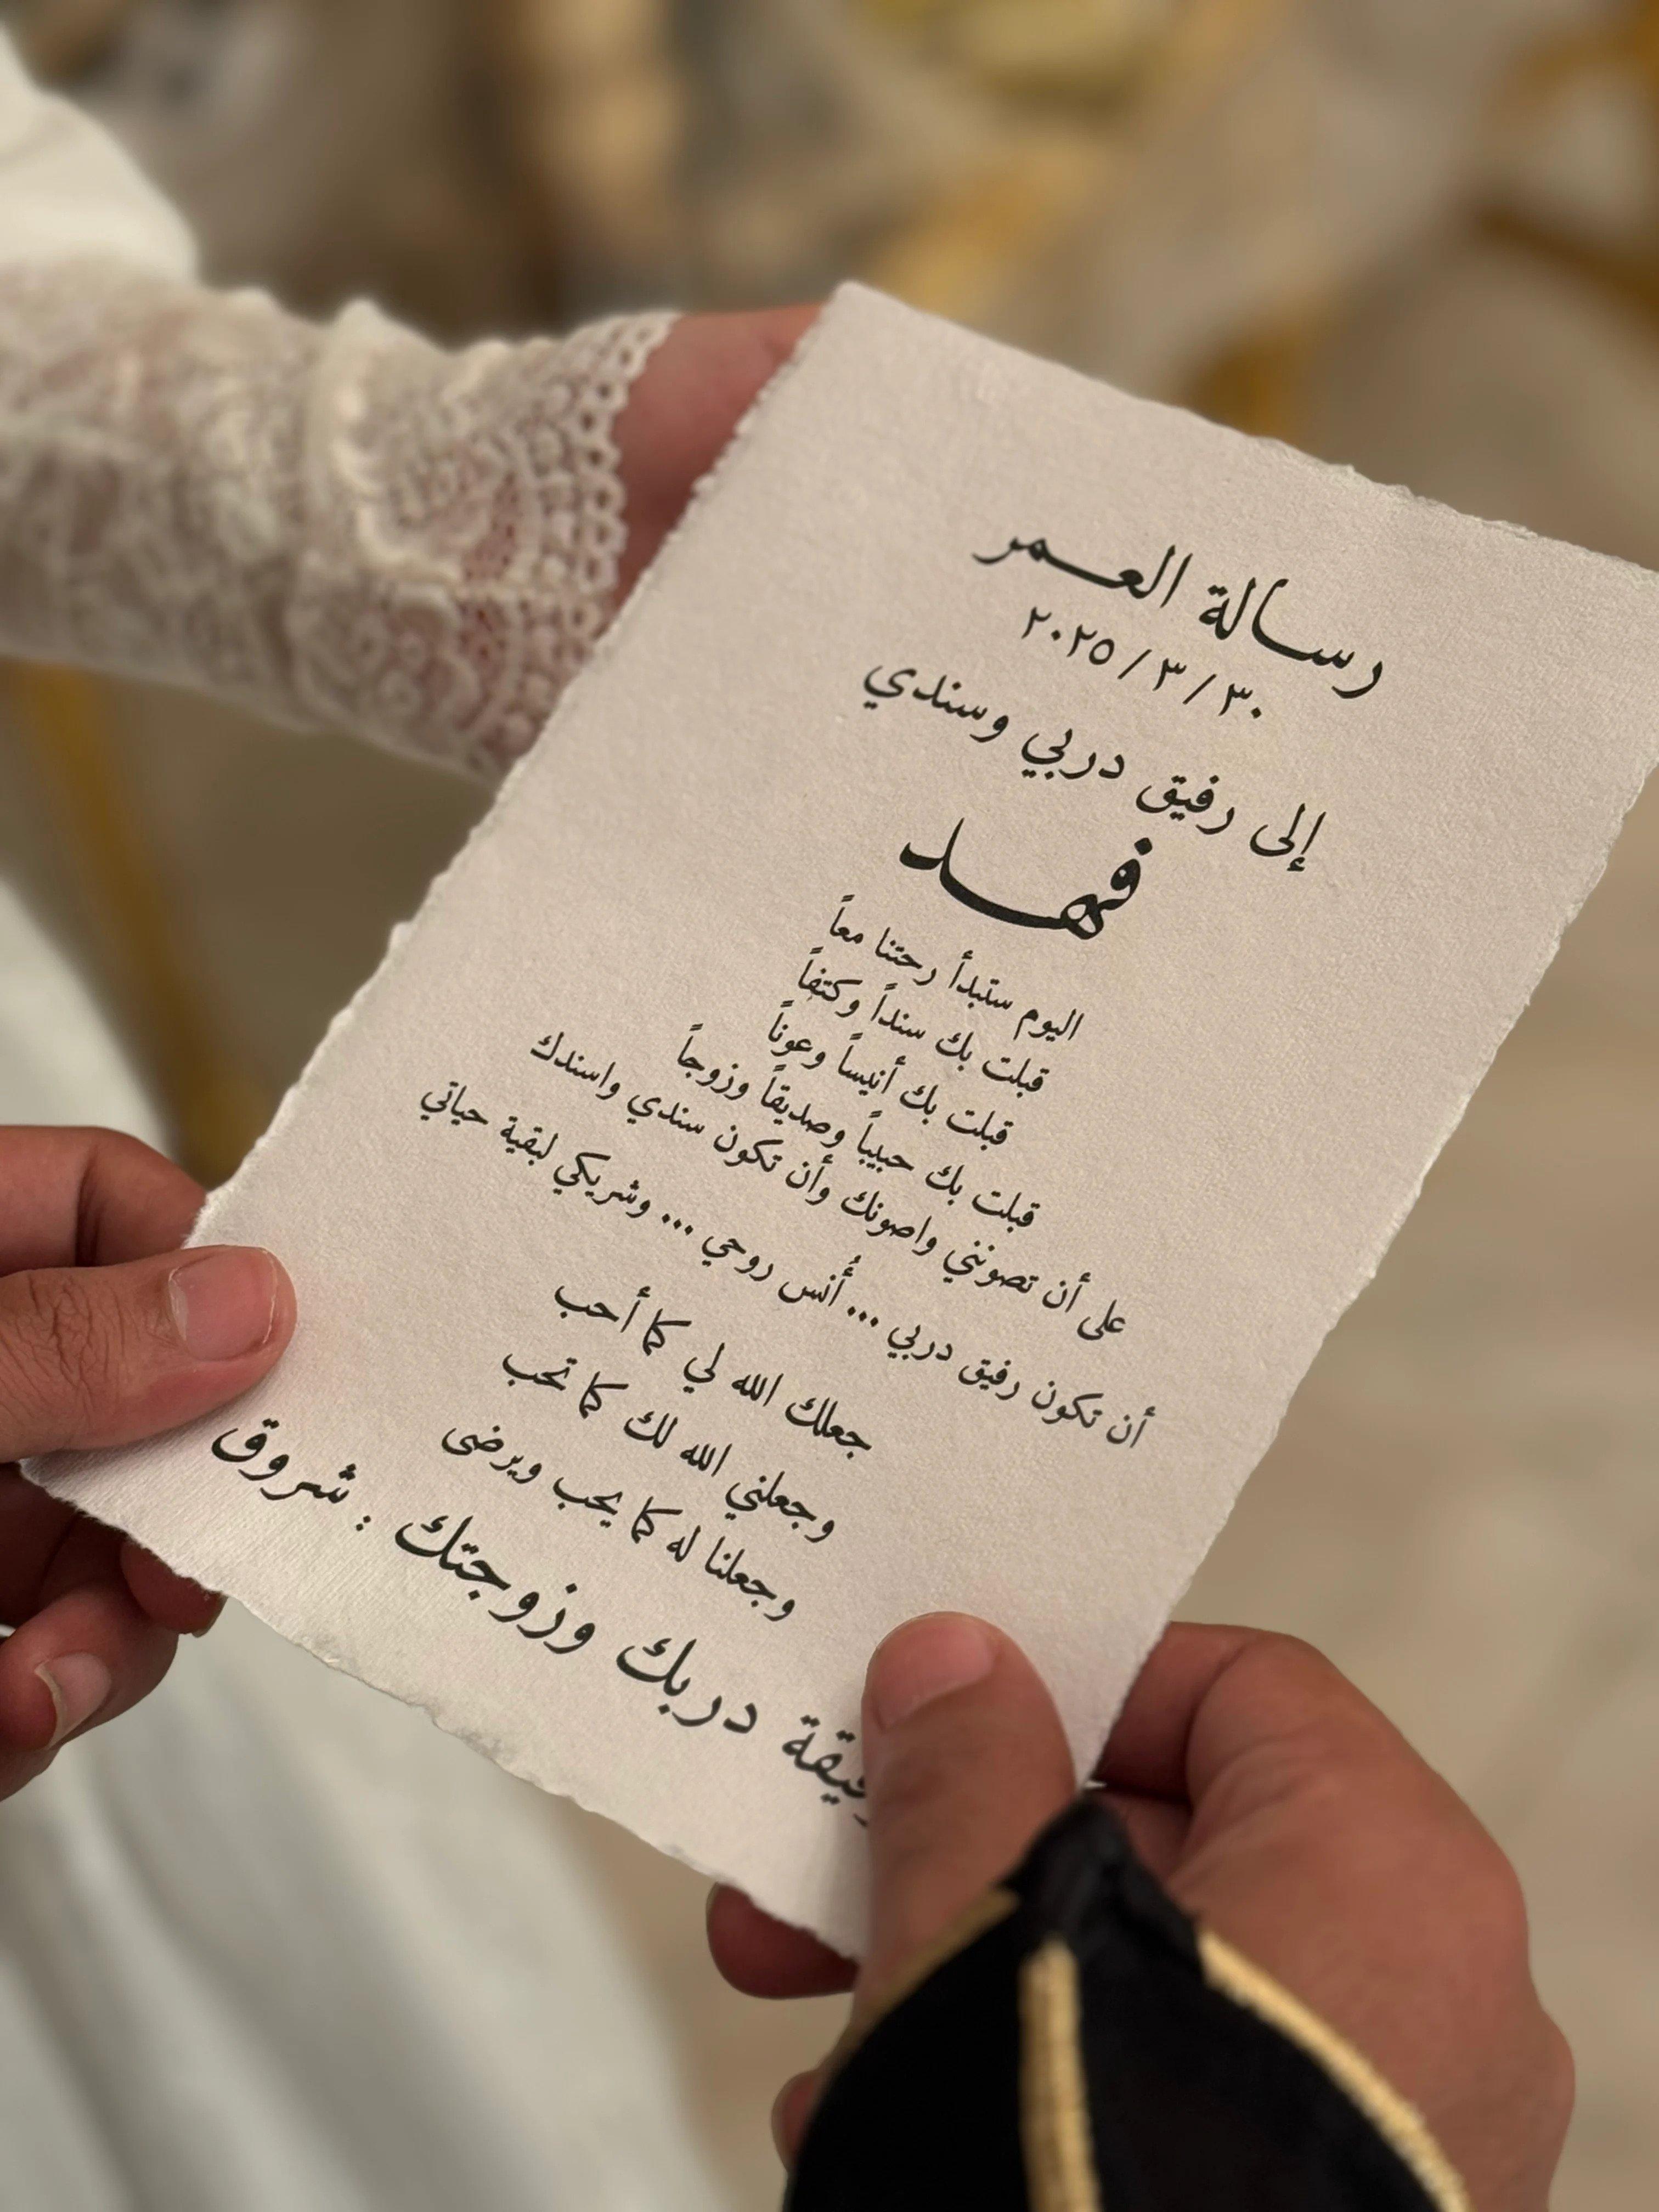 رسالة العمر
٣٠ / ٣ / ٢٠٢٥
إلى رفيق دربي وسندي
فهد
اليوم ستبدأ رحتنا معاً
قبلت بك سنداً وكتفاً
قبلت بك أنيساً وعوناً
قبلت بك حبيباً وصديقاً وزوجاً
على أن تصونني واصونك وأن تكون سندي واسندك
أن تكون رفيق دربي ... أُنس روحي ... وشريكي لبقية حياتي
جعلك الله لي كما أحب
وجعلني الله لك كما تحب
وجعلنا له كما يحب ويرضى
دربك وزوجتك : شروق